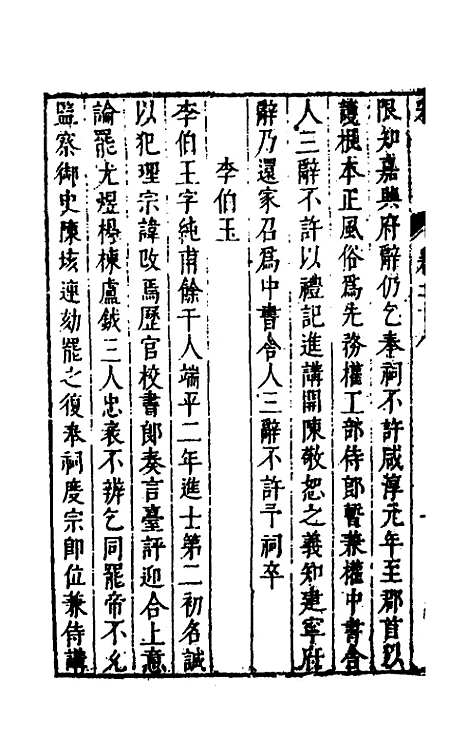 限知嘉興府辭仍乞奉祠不許咸淳元年至郡首以
護根本正風俗爲先務權工部侍郎暫兼權中書舍
人三辭不許以禮記進講開陳敬恕之義知建寧府
辭乃還家召爲中書舍人三辭不許予祠卒
李伯玉
李伯玉字純甫餘干人端平二年進士第二初名誠
以犯理宗諱改焉歷官校書郎奏言臺評迎合上意
論罷尤煜楊棟盧鉞三人忠衺不辨乞同罷帝不允
監察御史陳垓連劾罷之復奉祠度宗即位兼侍講